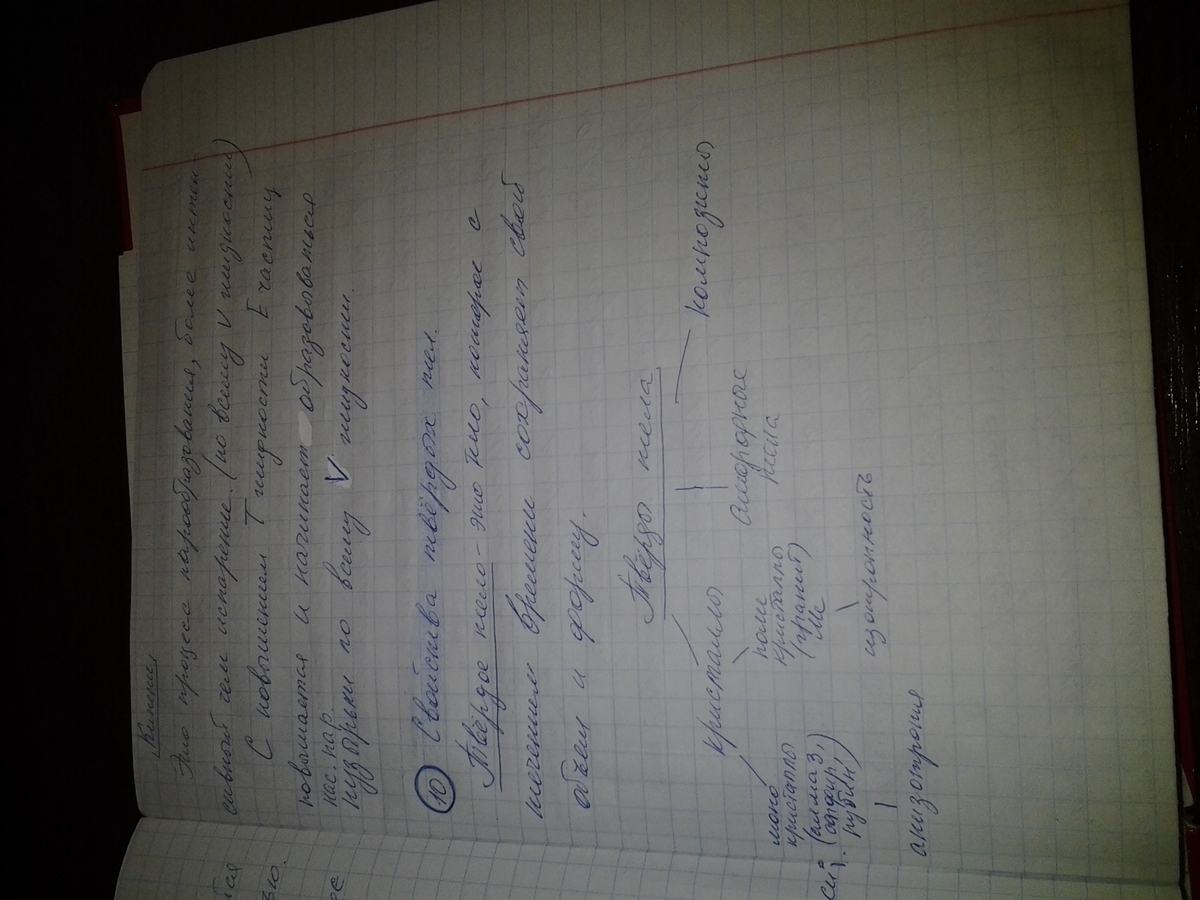 Кипение
Это процесс парообразования, более интен
сивный чем испарение. (по всему V жидкости)
С повышением T жидкости E частиц
повышается и начинает образовываться
нас. пар.
пузырьки по всему V жидкости.
10 Свойства твёрдых тел.
Твёрдое тело - это тело, которое с
течением времени сохраняет свой
объем и форму.
Твёрды тела
кристаллы
Аморфные
тела
композиты
моно
кристаллы
(алмаз,
сапфир,
рубин)
поли
кристаллы
(гранит)
Ме
анизотропия
изотропность